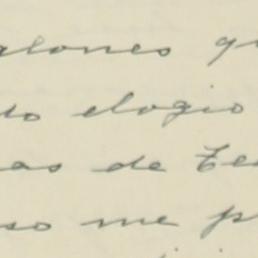 alones qu
do elogio
as de Te
so me p